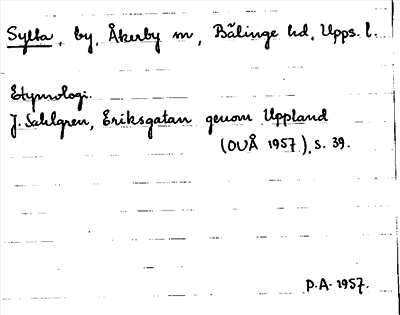 Sylta, by, Åkerby sn, Bälinge hd, Upps. l.
Etymologi.
J. Sahlgren, Eriksgatan genom Uppland
(OUÅ 1957), s. 39.
P.A. 1957.